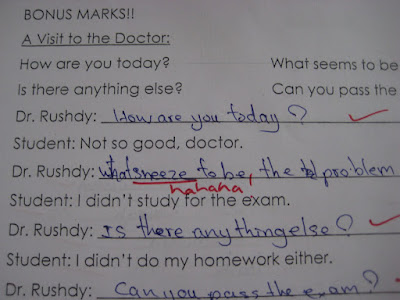 BONUS MARKS!!
A Visit to the Doctor:
How are you today? What seems to be
Is there anything else? Can you pass the
Dr. Rushdy: How are you today?
Student: Not so good, doctor.
Dr. Rushdy: what sneeze to be, the problem
hahaha
Student: I didn't study for the exam.
Dr. Rushdy: Is there anything else?
Student: I didn't do my homework either.
Dr. Rushdy: Can you pass the exam?